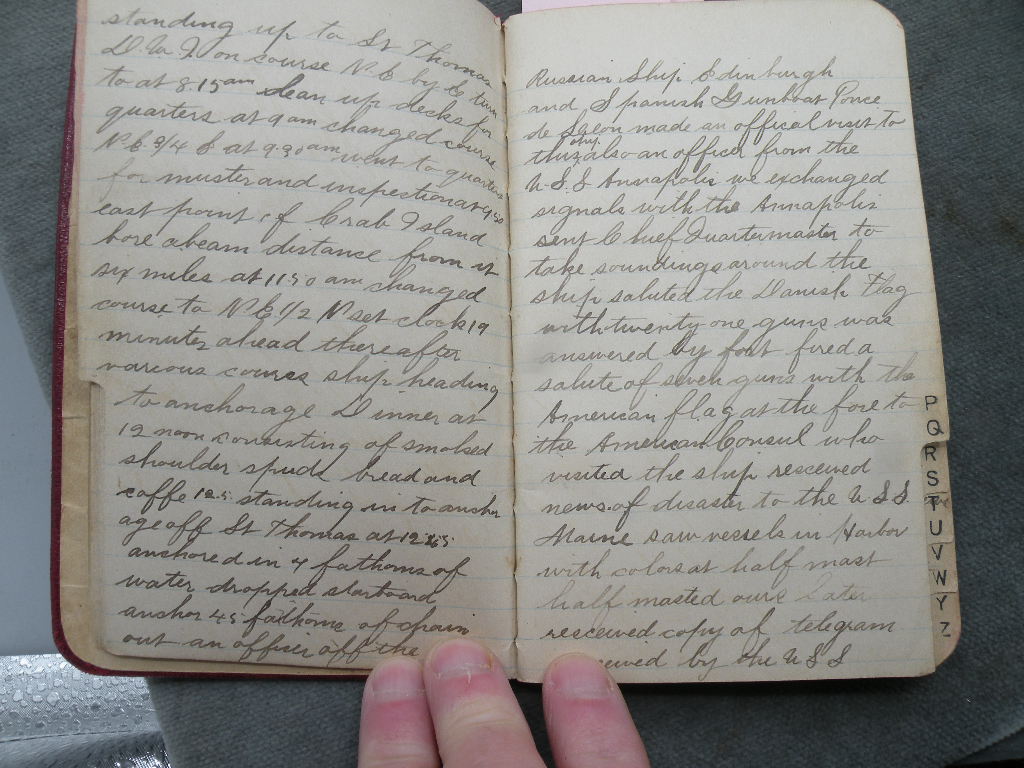 standing up to St Thomas
D.W.I on course N.E by E turn
to at 8.15am clean up decks for
quarters at 9am changed course
N.E 3/4 E at 9.30am went to quarters
for muster and inspection at 9.30
east point of Crab Island
bore abeam distance from it
six miles at 11.50 am changed
course to N.E 1/2 N set clock 19
minutes ahead thereafter
various courses ship heading
to anchorage Dinner at
12 noon consisting of smoked
shoulder spuds bread and
coffe 12.5 standing in to anchor
age off St Thomas at 12.45
anchored in 7 fathoms of
water dropped starboard
anchor 45 fathoms of chain
out an officer off the
Russian Ship Edinburgh
and Spanish Gunboat Ponce
de Leon made an offical visit to
this ship also an officer from the
U.S.S Annapolis we exchanged
signals with the Annapolis
sent Chief Quartermaster to
take soundings around the
ship saluted the Danish Flag
with twenty one guns was
answered by fort fired a
salute of seven guns with the
American flag at the fore to
the American Consul who
visited the ship resceived
news of disaster to the U S S
Maine saw vessels in Harbor
with colors at half mast
half masted ours later
resceived copy of telegram
ceived by the U S S
P
Q
R
S
T
U
V
W
Y
Z